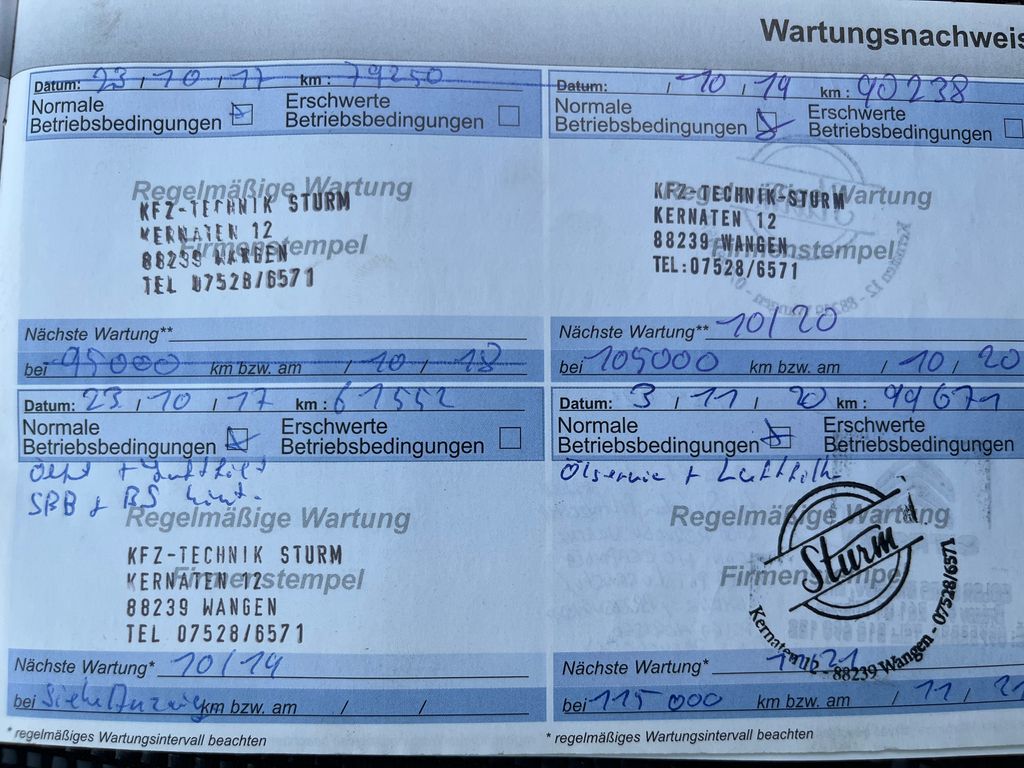 Wartungsnachweis
Datum: 23 / 10 / 17 km : 79250
Normale
Betriebsbedingungen
Erschwerte
Betriebsbedingungen
Regelmäßige Wartung
KFZ-TECHNIK STURM
KERNATEN 12
Firmenstempel
88239 WANGEN
TEL 07528/6571
Nächste Wartung**
bei 95000 km bzw. am / 10 / 18
Datum: / 10 / 19 km : 90238
Normale
Betriebsbedingungen
Erschwerte
Betriebsbedingungen
Regelmäßige Wartung
KFZ-TECHNIK-STURM
KERNATEN 12
88239 WANGEN
Firmenstempel
TEL:07528/6571
Nächste Wartung** 10/20
bei 105000 km bzw. am / 10 / 20
Datum: 23 / 10 / 17 km : 61552
Normale
Betriebsbedingungen
Erschwerte
Betriebsbedingungen
+ Luftfilt
SBB + BS hint.
Regelmäßige Wartung
KFZ-TECHNIK STURM
KERNATEN 12
Firmenstempel
88239 WANGEN
TEL 07528/6571
Nächste Wartung* 10/19
bei Siehe Anzeige km bzw. am / /
* regelmäßiges Wartungsintervall beachten
Datum: 3 / 11 / 20 km : 99671
Normale
Betriebsbedingungen
Erschwerte
Betriebsbedingungen
Ölservice + Luftfilter
Regelmäßige Wartung
Sturm
Firmenstempel
Kernaten 12 - 88239 Wangen - 07528/6571
Nächste Wartung* 11/21
bei 115000 km bzw. am / 11 / 21
* regelmäßiges Wartungsintervall beachten